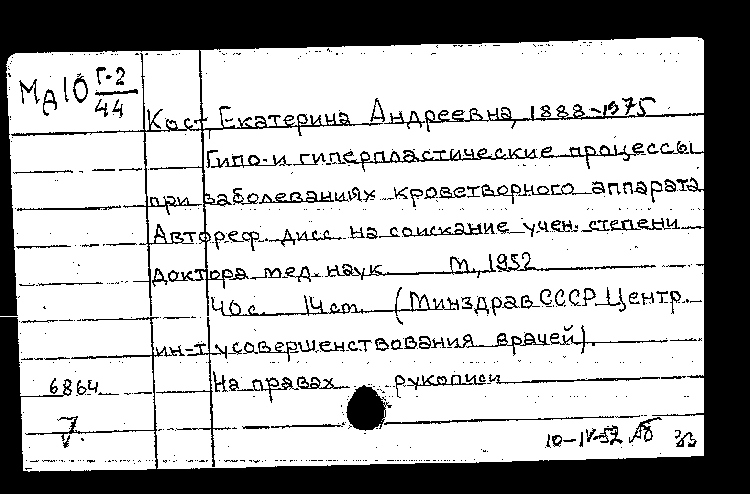 МА10 Г-2
44
Кост, Екатерина Андреевна, 1888-1975
Гипо- и гиперпластические процессы
при заболеваниях кроветворного аппарата
Автореф. дисс. на соискание учен. степени
доктора мед. наук М., 1952
40 с. 14 cm. (Минздрав СССР. Центр.
ин-т усовершенствования врачей).
6864 На правах рукописи
10-IV-52